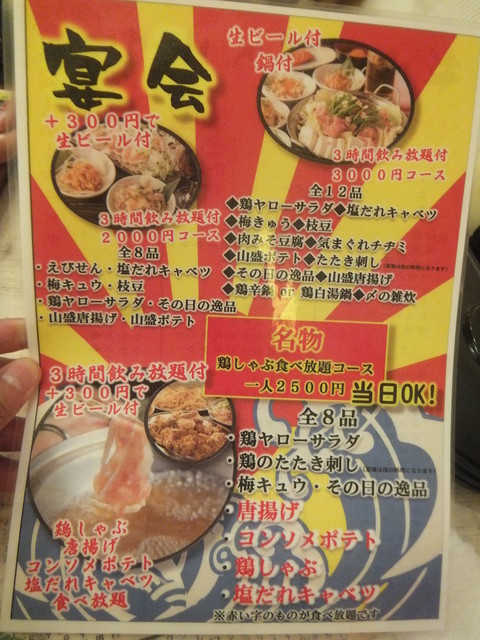 宴会
生ビール付
鍋付
+300円で
生ビール付
3時間飲み放題付
3000円コース
全12品
◆鶏ヤローサラダ◆塩だれキャベツ
◆梅きゅう◆枝豆
◆肉みそ豆腐◆気まぐれチヂミ
◆山盛ポテト◆たたき刺し
◆その日の逸品◆山盛唐揚げ
◆鶏辛鍋 or 鶏白湯鍋◆〆の雑炊
3時間飲み放題付
2000円コース
全8品
・えびせん・塩だれキャベツ
・梅キュウ・枝豆
・鶏ヤローサラダ・その日の逸品
・山盛唐揚げ・山盛ポテト
名物
鶏しゃぶ食べ放題コース
一人2500円
当日OK!
3時間飲み放題付
+300円で
生ビール付
全8品
・鶏ヤローサラダ
・鶏のたたき刺し
・梅キュウ・その日の逸品
・唐揚げ
・コンソメポテト
・鶏しゃぶ
・塩だれキャベツ
※赤い字のものが食べ放題です
鶏しゃぶ
唐揚げ
コンソメポテト
塩だれキャベツ
食べ放題